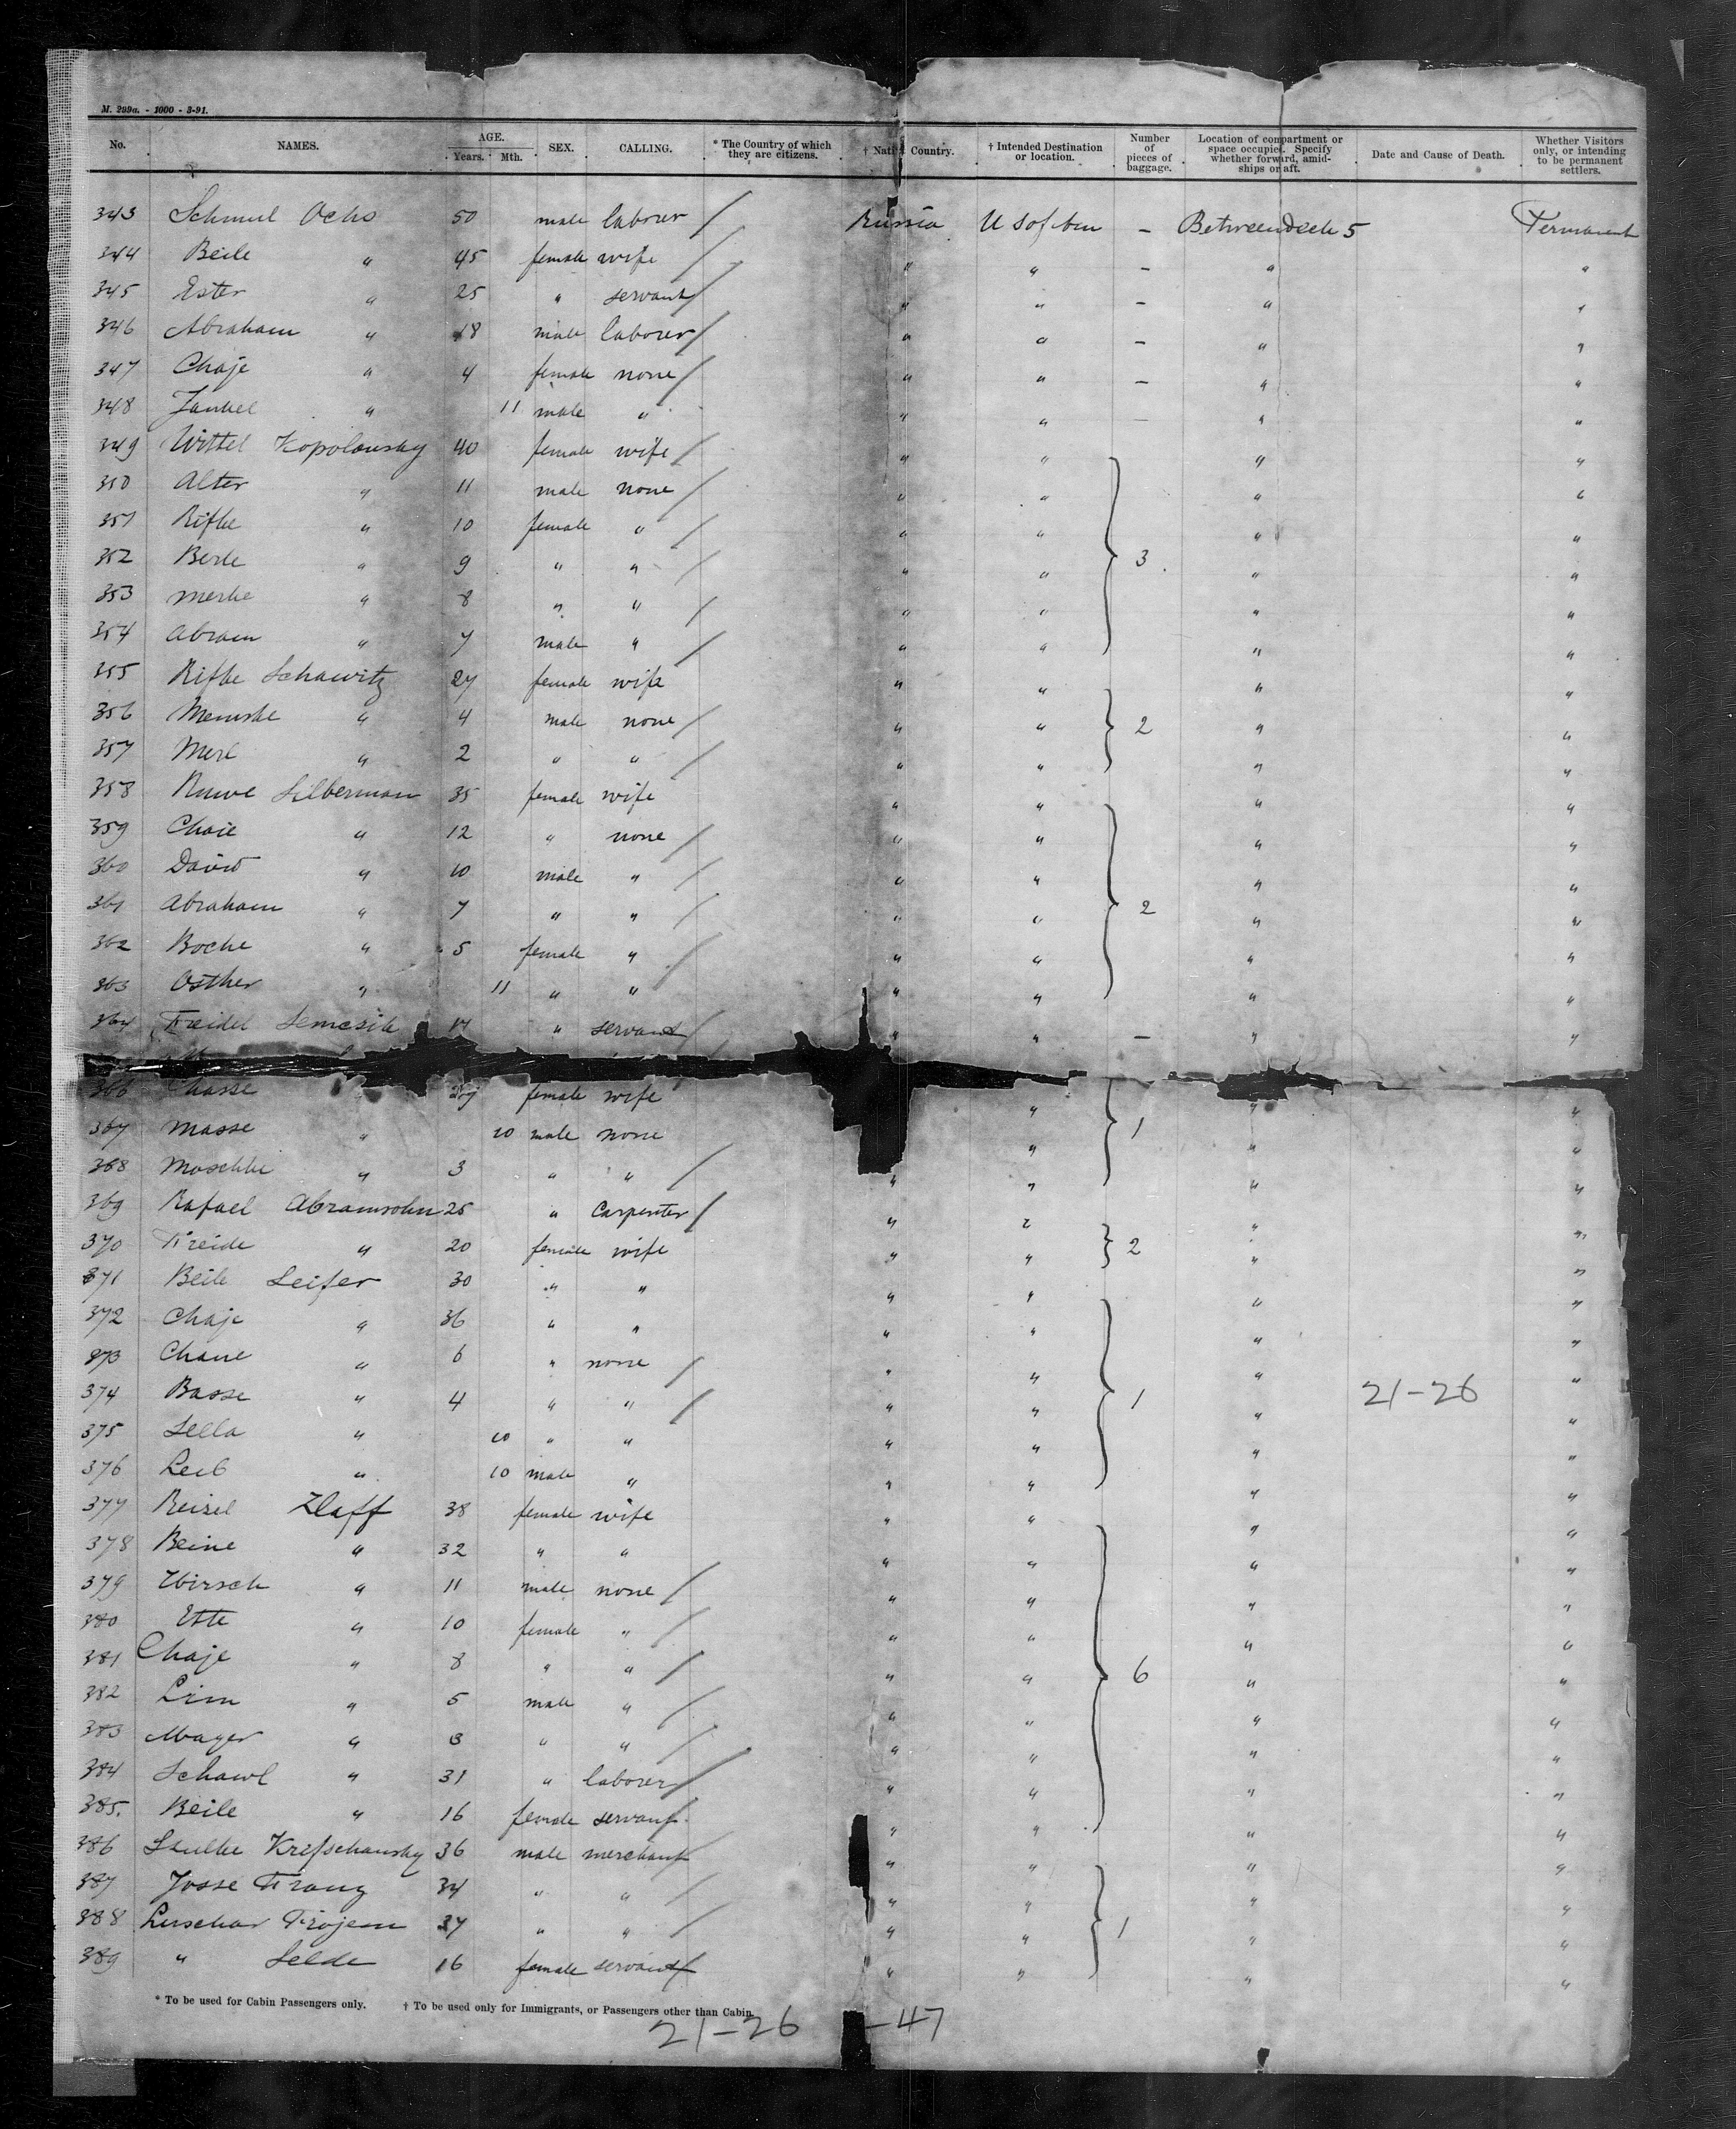 M. 299a. - 1000 - 3-91.
No. NAMES. AGE. Years. Mth. SEX. CALLING. * The Country of which they are citizens. † Native Country. † Intended Destination or location. Number of pieces of baggage. Location of compartment or space occupied. Specify whether forward, amidships or aft. Date and Cause of Death. Whether Visitors only, or intending to be permanent settlers.
343 Schmul Ochs 50 male laborer / Russia U S of Am - Betweendeck 5 Permanent
344 Beile " 45 female wife / " " - " "
345 Ester " 25 " servant / " " - " "
346 Abraham " 18 male laborer / " " - " "
347 Chaje " 4 female none / " " - " "
348 Jankel " 11 male " " " - " "
349 Wittel Kopolansky 40 female wife / " " " "
350 Alter " 11 male none / " " " "
351 Rifke " 10 female " / " " " "
352 Berle " 9 " " / " " 3 " "
353 Merke " 8 " " / " " " "
354 Abram " 7 male " / " " " "
355 Rifke Schawitz 27 female wife " " " "
356 " 4 male none / " " 2 " "
357 Merl " 2 " " / " " " "
358 Silberman 35 female wife " " " "
359 Chaie " 12 " none / " " " "
360 David " 10 male " / " " " "
361 Abraham " 7 " " / " " 2 " "
362 Boche " 5 female " / " " " "
363 Osther " 11 " " " " " "
364 Freidel 17 " servant / " " - " "
366 Chasse female wife " " "
367 Masse " 10 male none " 1 " "
368 Moschke " 3 " " / " " " "
369 Rafael Abramsohn 25 " Carpenter / " " " "
370 Freide " 20 female wife " " 2 " "
371 Beile Leifer 30 " " " " " "
372 Chaje " 36 " " " " " "
373 Chane " 6 " none / " " " "
374 Basse " 4 " " / " " 1 " 21-26 "
375 Sella " 10 " " " " " "
376 Leib " 10 male " " " " "
377 Reisel Zlaff 38 female wife " " " "
378 Beine " 32 " " " " " "
379 Hirsch " 11 male none / " " " "
380 Ette " 10 female " / " " " "
381 Chaje " 8 " " / " " 6 " "
382 " 5 male " / " " " "
383 Mayer " 3 " " / " " " "
384 Schawl " 31 " laborer / " " " "
385. Beile " 16 female servant " " " "
386 36 male merchant " " " "
387 Josse Franz 34 " " / " " " "
388 37 " " / " " 1 " "
389 " Selde 16 female servant / " " " "
* To be used for Cabin Passengers only. † To be used only for Immigrants, or Passengers other than Cabin.
21-26 -47